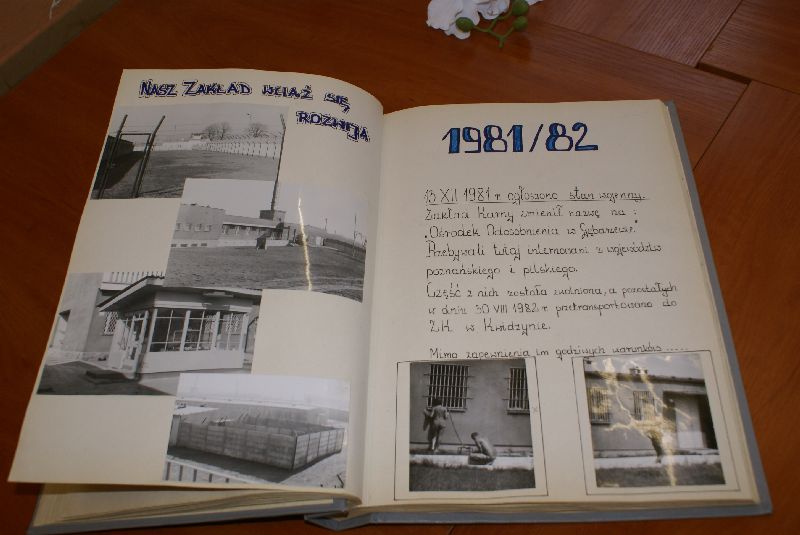 NASZ ZAKŁAD WCIĄŻ SIĘ
ROZWIJA
1981/82
13 XII 1981 r ogłoszono stan wojenny.
Zakład Karny zmienił nazwę na:
"Ośrodek Odosobnienia w Gębarzewie".
Przebywali tutaj internowani z województw
poznańskiego i pilskiego.
Część z nich została zwolniona, a pozostałych
w dniu 30 VIII 1982 r przetransportowano do
Z.K. w Kwidzynie.
Mimo zapewnienia im godziwych warunków .....